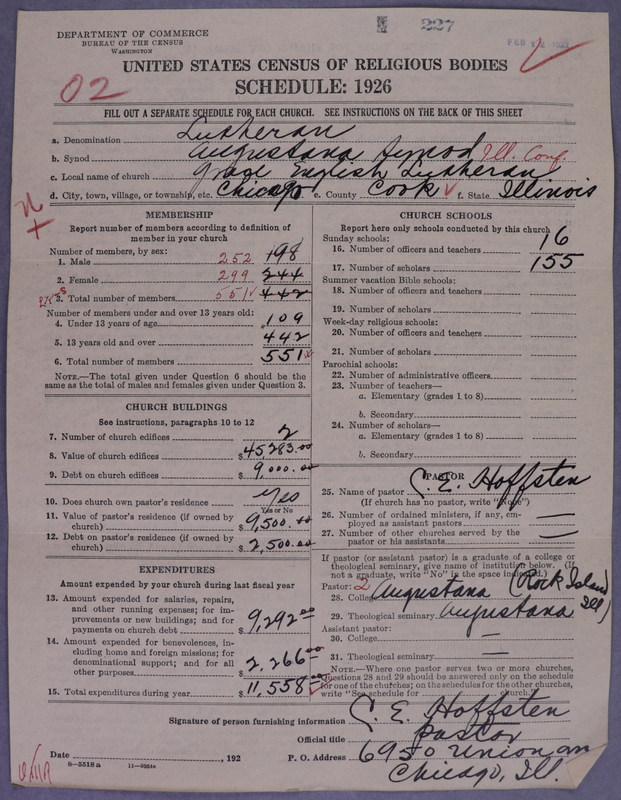 227
DEPARTMENT OF COMMERCE
BUREAU OF THE CENSUS
WASHINGTON
FEB 12 1927
UNITED STATES CENSUS OF RELIGIOUS BODIES
02
SCHEDULE: 1926
FILL OUT A SEPARATE SCHEDULE FOR EACH CHURCH. SEE INSTRUCTIONS ON THE BACK OF THIS SHEET
a. Denomination Lutheran
b. Synod Augustana Synod Ill. Conf.
c. Local name of church Grace English Lutheran
d. City, town, village, or township, etc. Chicago e. County Cook f. State Illinois
MEMBERSHIP
Report number of members according to definition of
member in your church
Number of members, by sex:
1. Male 252 198
2. Female 299 244
3. Total number of members 551 442
Number of members under and over 13 years old:
4. Under 13 years of age 109
5. 13 years old and over 442
6. Total number of members 551
NOTE.—The total given under Question 6 should be the
same as the total of males and females given under Question 3.
CHURCH BUILDINGS
See instructions, paragraphs 10 to 12
7. Number of church edifices 2
8. Value of church edifices $ 45,283.00
9. Debt on church edifices $ 9,000.00
10. Does church own pastor's residence Yes
Yes or No
11. Value of pastor's residence (if owned by
church) $ 9,500.00
12. Debt on pastor's residence (if owned by
church) $ 2,500.00
EXPENDITURES
Amount expended by your church during last fiscal year
13. Amount expended for salaries, repairs,
and other running expenses; for im-
provements or new buildings; and for
payments on church debt $ 9,292.00
14. Amount expended for benevolences, in-
cluding home and foreign missions; for
denominational support; and for all
other purposes $ 2,266.00
15. Total expenditures during year $ 11,558.00
CHURCH SCHOOLS
Report here only schools conducted by this church
Sunday schools:
16. Number of officers and teachers 16
17. Number of scholars 155
Summer vacation Bible schools:
18. Number of officers and teachers
19. Number of scholars
Week-day religious schools:
20. Number of officers and teachers
21. Number of scholars
Parochial schools:
22. Number of administrative officers
23. Number of teachers—
a. Elementary (grades 1 to 8)
b. Secondary
24. Number of scholars—
a. Elementary (grades 1 to 8)
b. Secondary
PASTOR
25. Name of pastor C. E. Hoffsten
(If church has no pastor, write "None")
26. Number of ordained ministers, if any, em-
ployed as assistant pastors —
27. Number of other churches served by the
pastor or his assistants —
If pastor (or assistant pastor) is a graduate of a college or
theological seminary, give name of institution below. (If
not a graduate, write "No" in the space indicated.)
Pastor: 2
28. College Augustana (Rock Island Ill)
29. Theological seminary Augustana
Assistant pastor:
30. College —
31. Theological seminary —
NOTE.—Where one pastor serves two or more churches,
Questions 28 and 29 should be answered only on the schedule
for one of the churches; on the schedules for the other churches,
write "See schedule for church."
Signature of person furnishing information C. E. Hoffsten
Official title Pastor
Date , 192 P. O. Address 6950 Union av
8—5518 a 11—9264a Chicago, Ill.